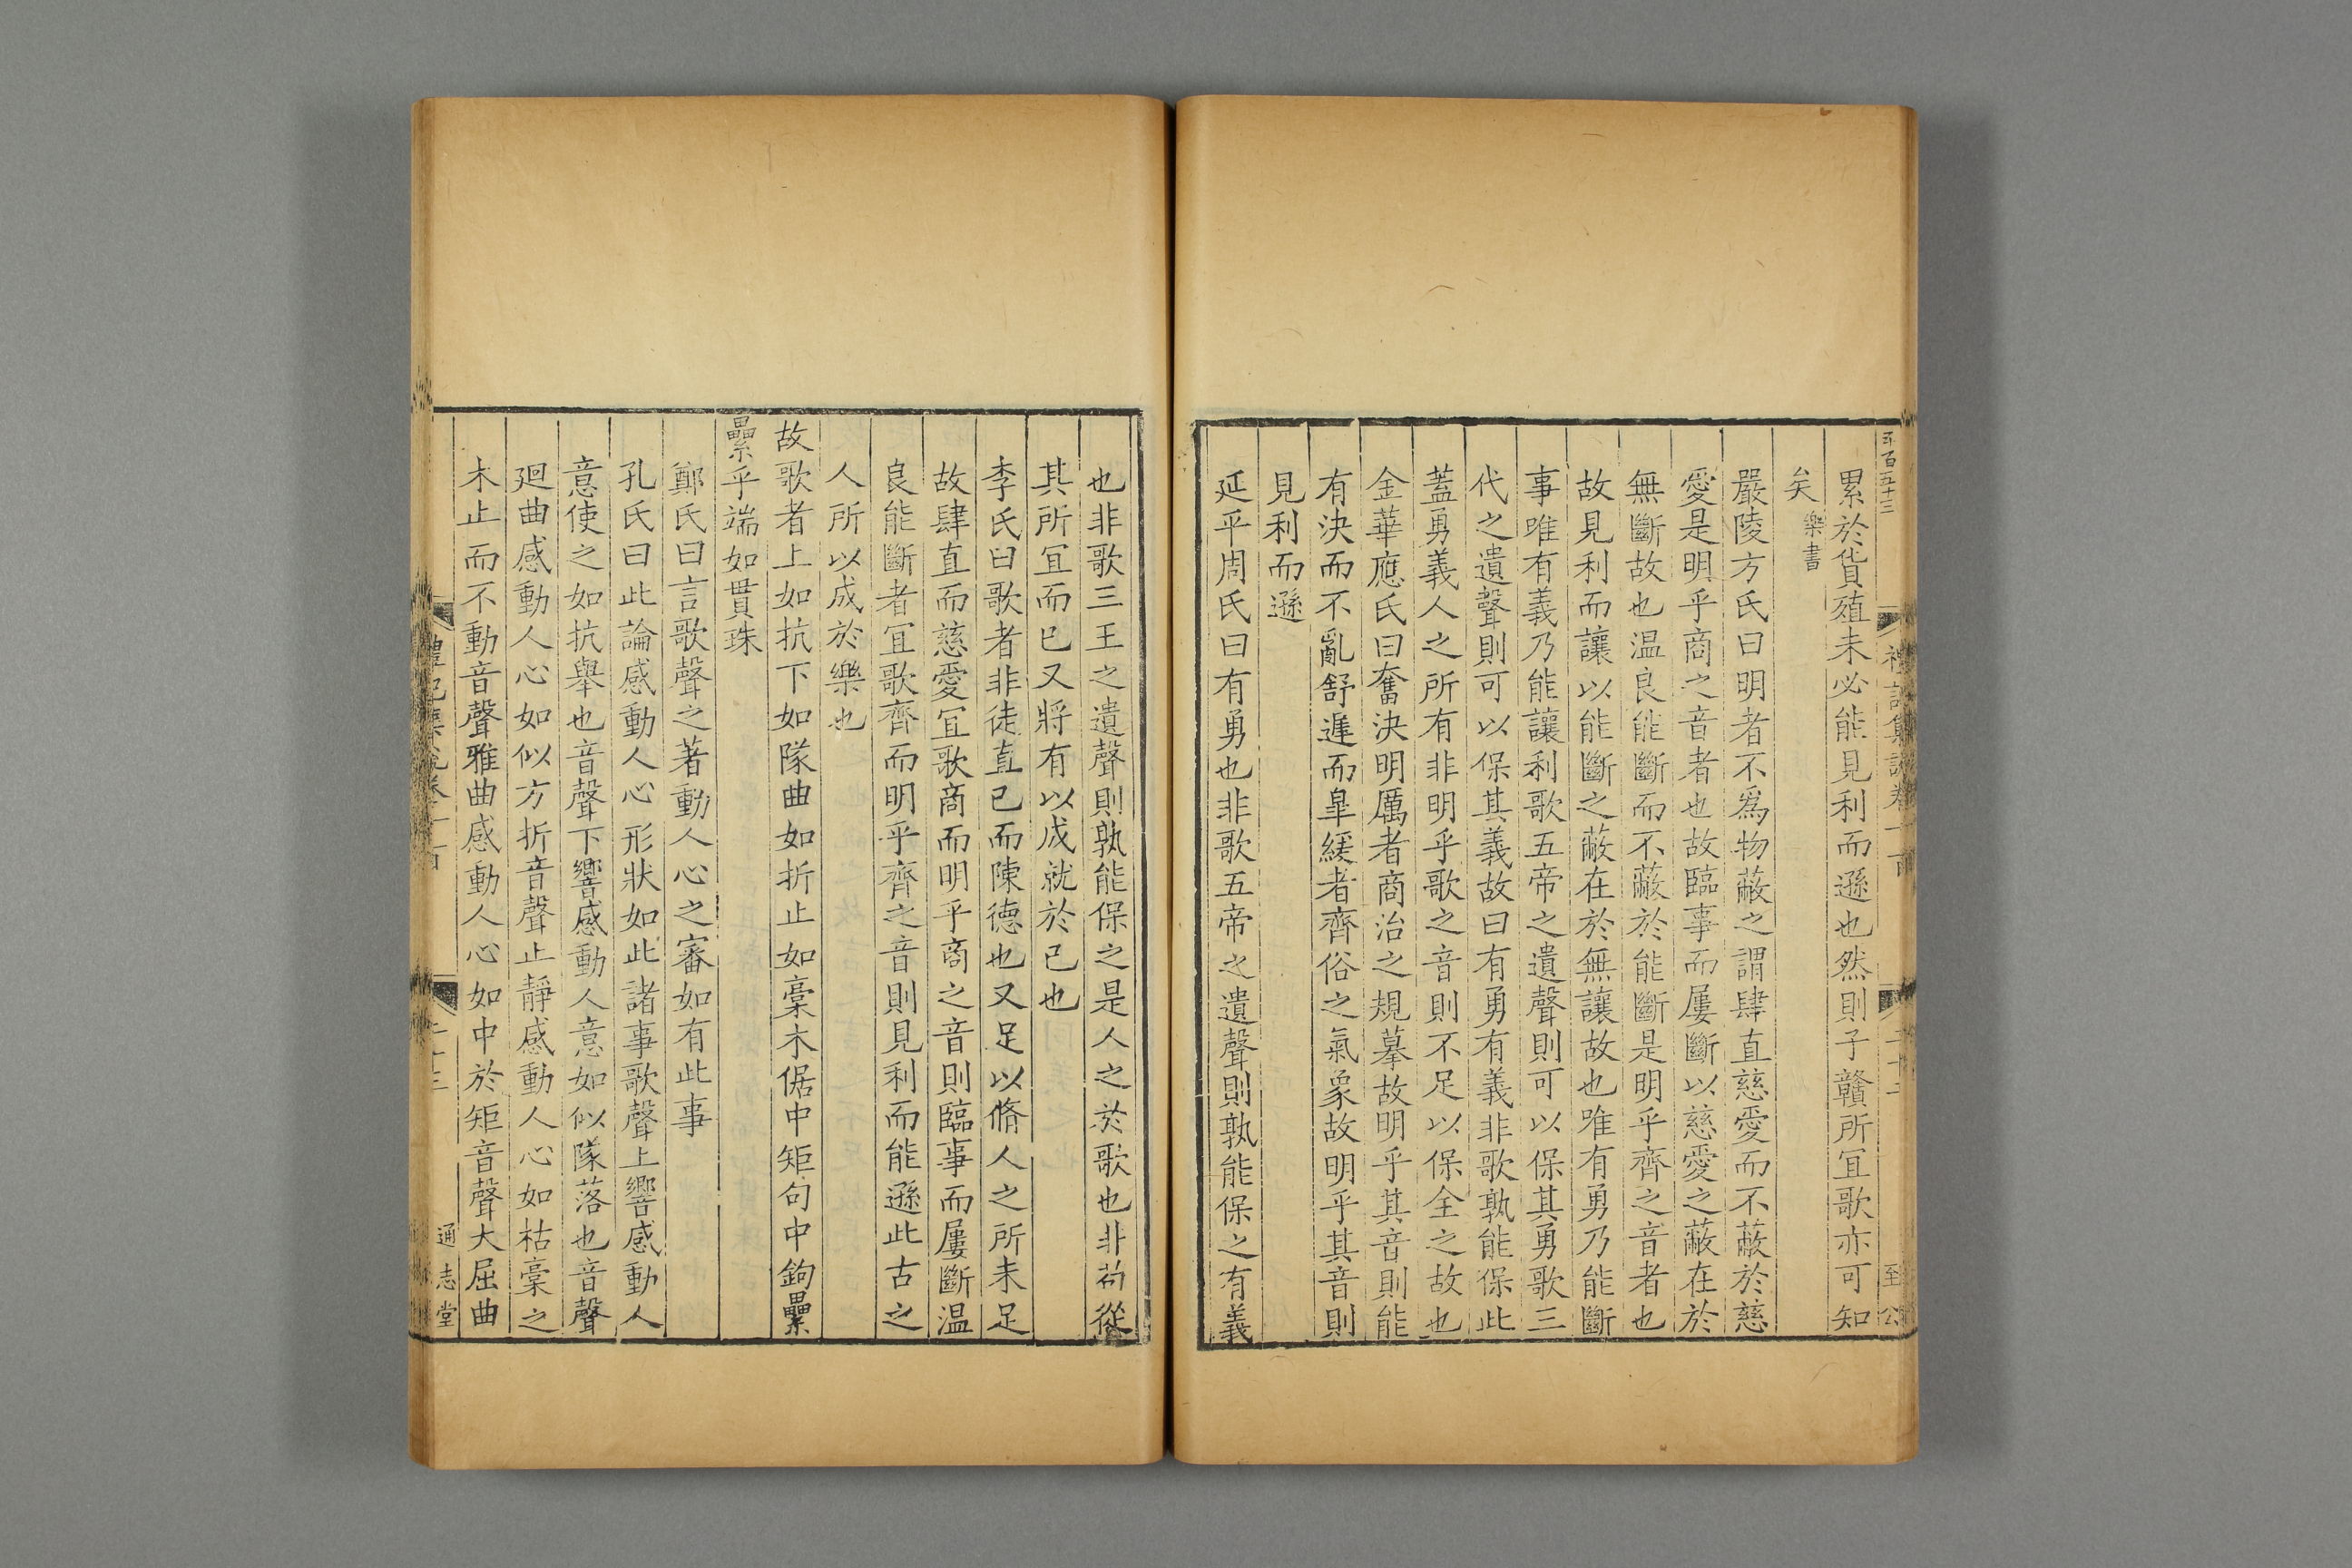 五百五十三
至公
累於貨殖未必能見利而遜也然則子贛所冝歌亦可知
矣樂書
嚴陵方氏曰明者不爲物蔽之謂肆直慈愛而不蔽於慈
愛是明乎商之音者也故臨事而屢斷以慈愛之蔽在於
無斷故也温良能斷而不蔽於能斷是明乎齊之音者也
故見利而讓以能斷之蔽在於無讓故也唯有勇乃能斷
事唯有義乃能讓利歌五帝之遺聲則可以保其勇歌三
代之遺聲則可以保其義故曰有勇有義非歌孰能保此
蓋勇義人之所有非明乎歌之音則不足以保全之故也
金華應氏曰奮決明厲者商治之規摹故明乎其音則能
有決而不亂舒遲而皐緩者齊俗之氣象故明乎其音則
見利而遜
延平周氏曰有勇也非歌五帝之遺聲則孰能保之有義
也非歌三王之遺聲則孰能保之是人之於歌也非苟從
其所冝而已又將有以成就於己也
李氏曰歌者非徒直己而陳德也又足以脩人之所未足
故肆直而慈愛冝歌商而明乎商之音則臨事而屢斷温
良能斷者冝歌齊而明乎齊之音則見利而能遜此古之
人所以成於樂也
故歌者上如抗下如隊曲如折止如槀木倨中矩句中鉤纍
纍乎端如貫珠
鄭氏曰言歌聲之著動人心之審如有此事
孔氏曰此論感動人心形狀如此諸事歌聲上響感動人
意使之如抗舉也音聲下響感動人意如似隊落也音聲
廻曲感動人心如似方折音聲止靜感動人心如枯槀之
木止而不動音聲雅曲感動人心如中於矩音聲大屈曲
通志堂